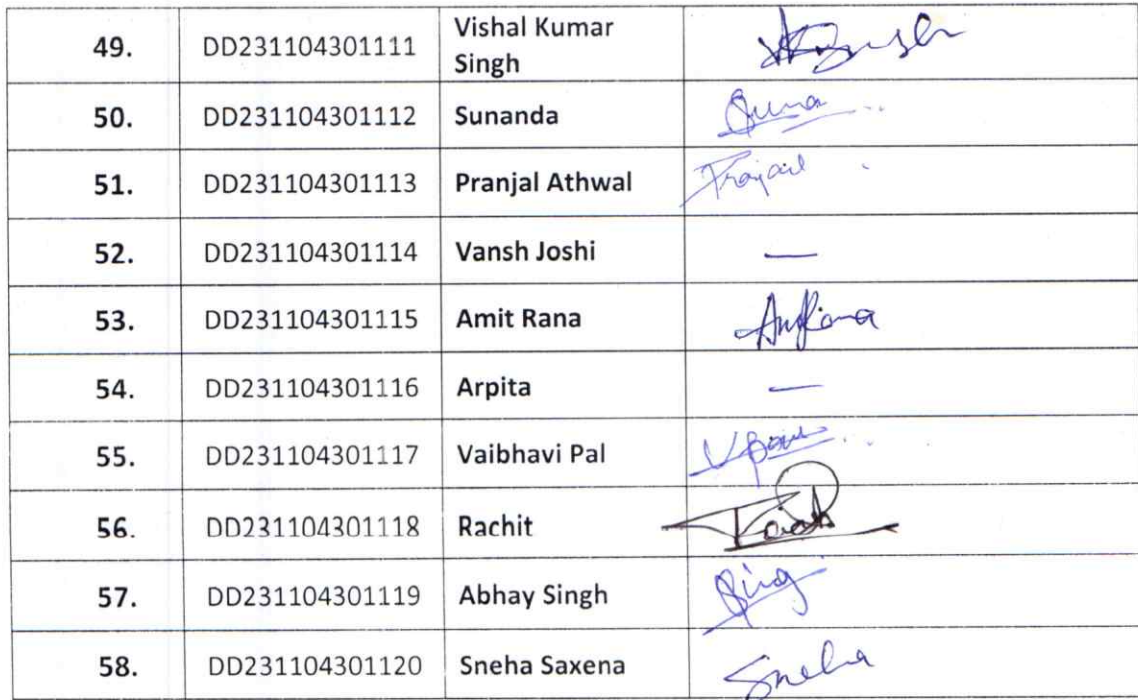 49. DD231104301111 Vishal Kumar
Singh
50. DD231104301112 Sunanda Suna
51. DD231104301113 Pranjal Athwal
52. DD231104301114 Vansh Joshi —
53. DD231104301115 Amit Rana
54. DD231104301116 Arpita —
55. DD231104301117 Vaibhavi Pal
56. DD231104301118 Rachit
57. DD231104301119 Abhay Singh
58. DD231104301120 Sneha Saxena Sneha